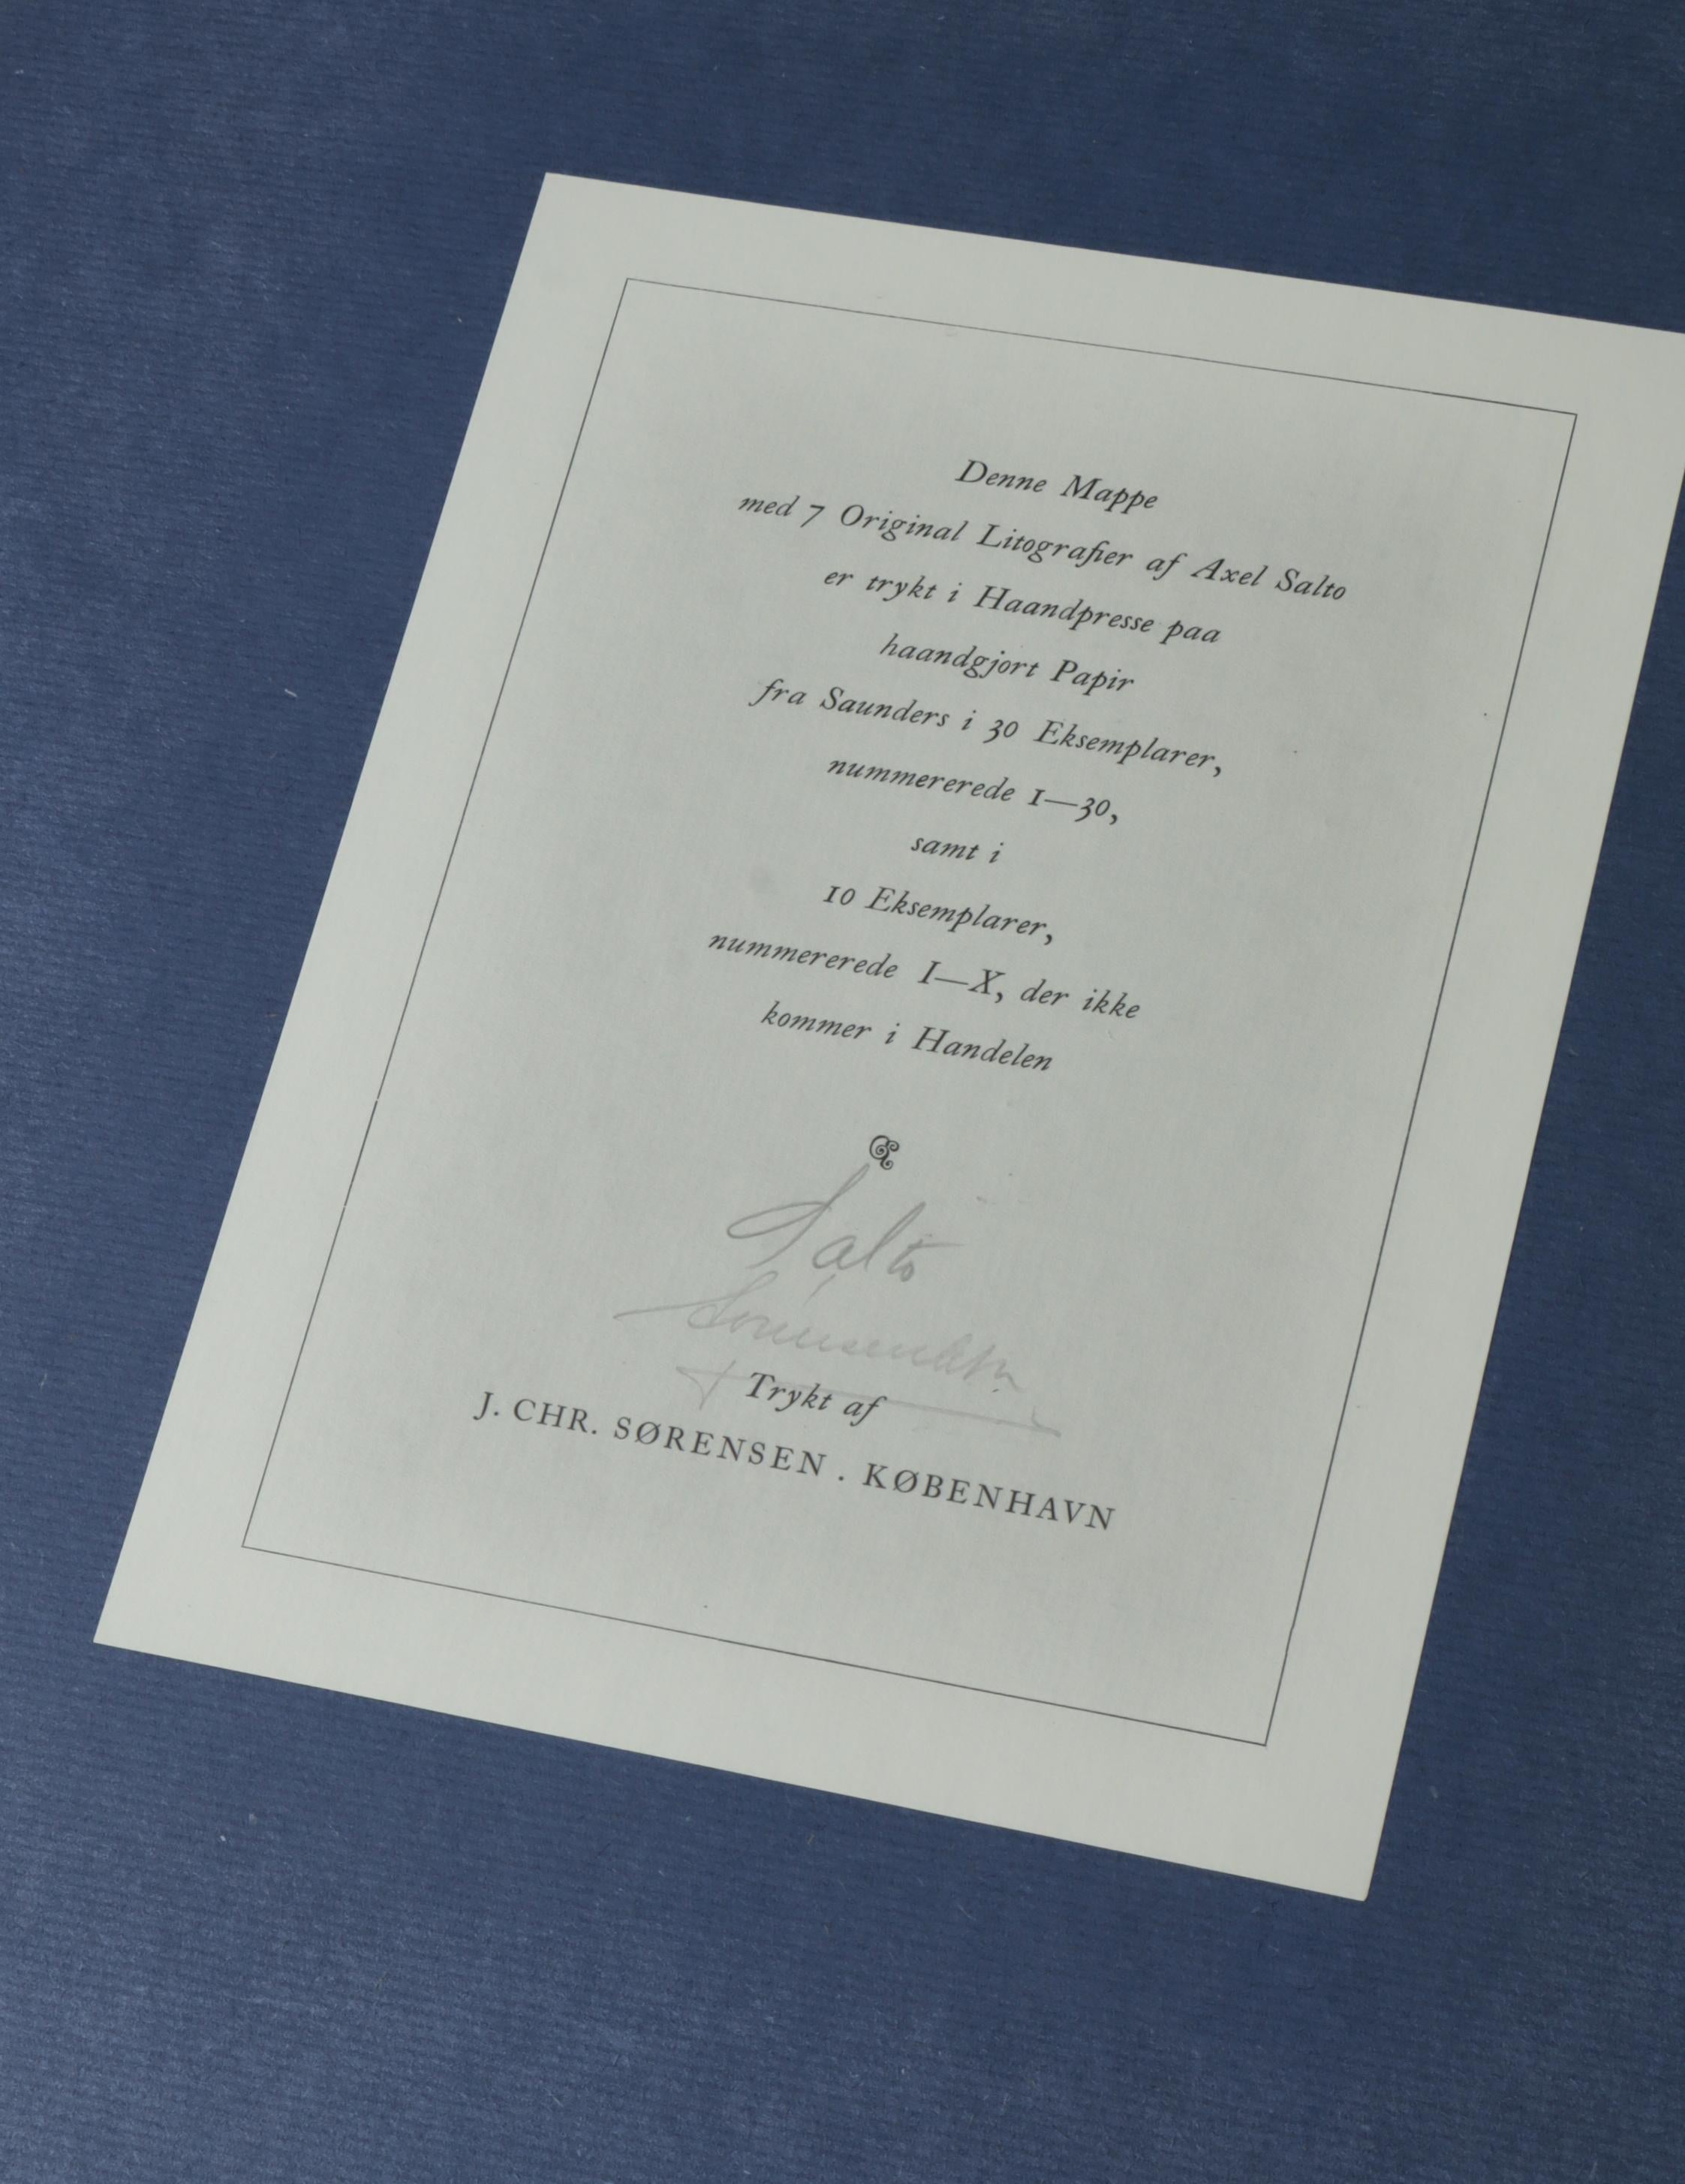 Denne Mappe
med 7 Original Litografier af Axel Salto
er trykt i Haandpresse paa
haandgjort Papir
fra Saunders i 30 Eksemplarer,
nummererede 1—30,
samt i
10 Eksemplarer,
nummererede I—X, der ikke
kommer i Handelen
Salto
Trykt af
J. CHR. SØRENSEN . KØBENHAVN